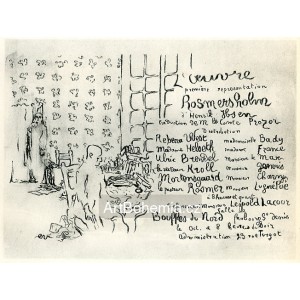 l'œuvre
première représentation
Rosmersholm
d'Henrik Ibsen
traduction de M. le Comte Prozor
Distribution
Rebecca West mademoiselle Bady
madame Helseth madame France
Ulric Brendel Monsieur
Kroll Monsieur
Mortensgaard Monsieur
Rosmer Monsieur Lugné Poe
Léopold Lacour
Salle des
Bouffes du Nord faubourg St Denis
le Oct. à 8 heures du soir
administration 23 rue Turgot
ArtBohemia